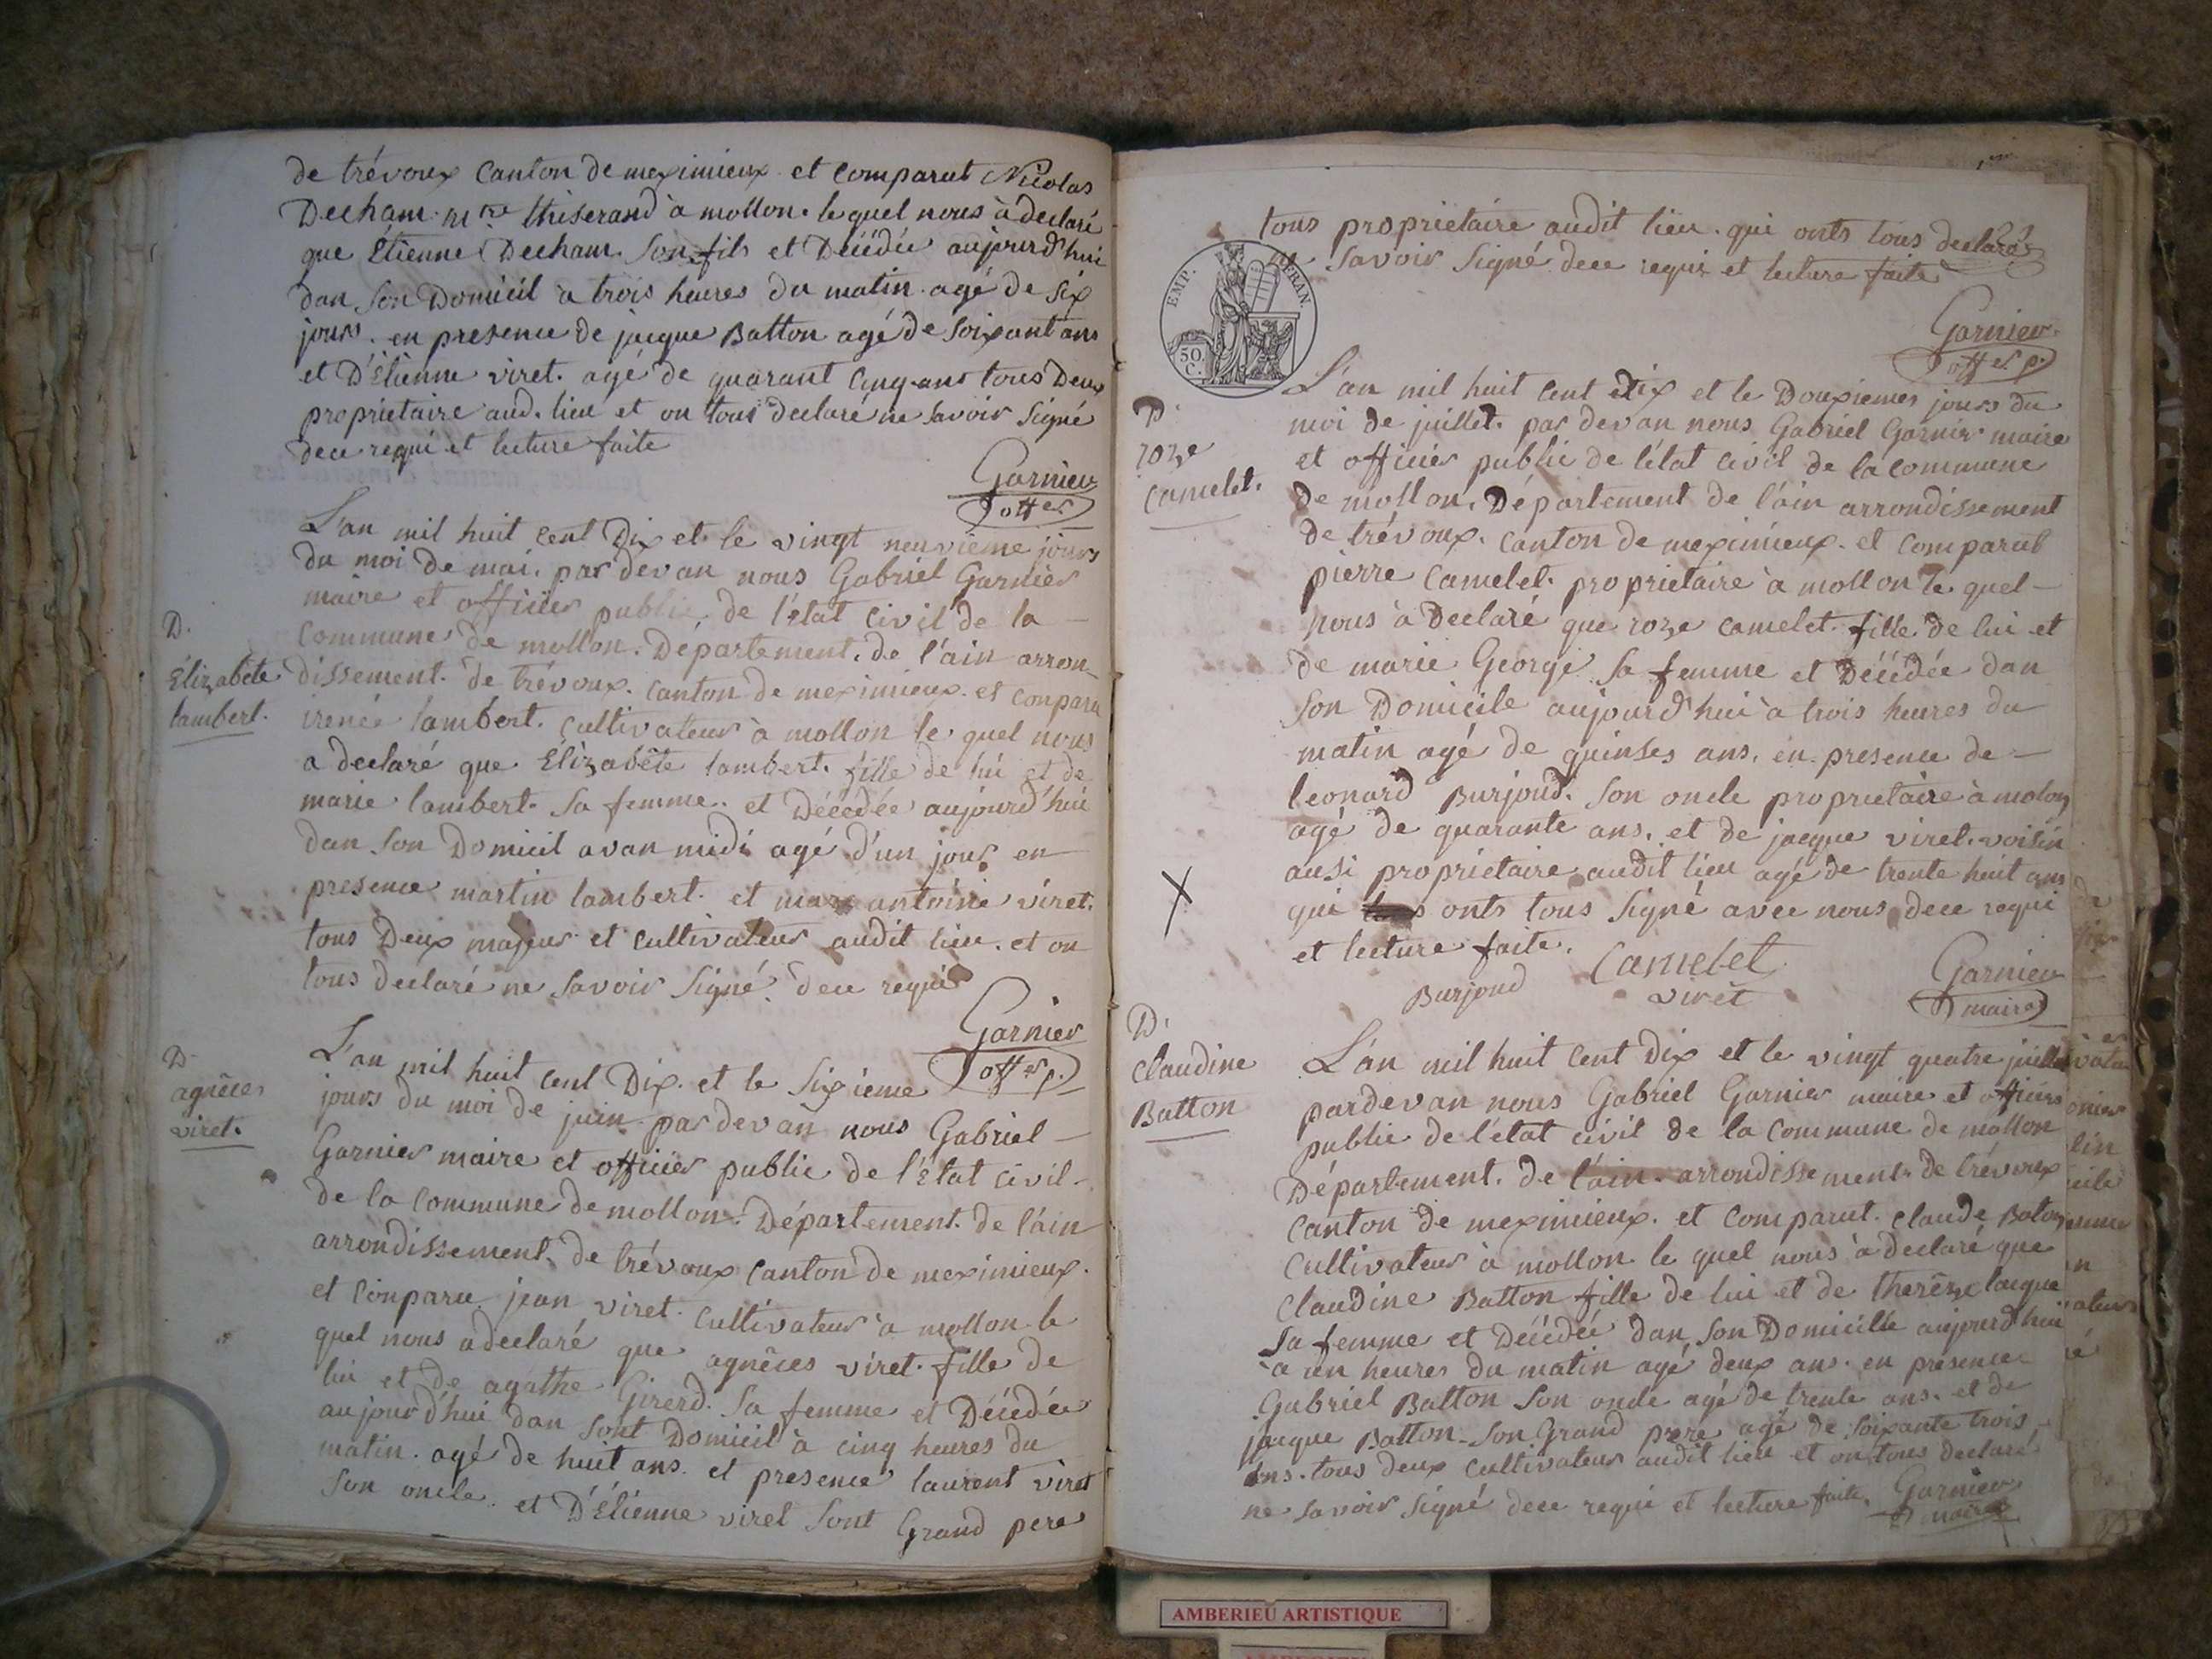 de trévoux Canton de meximieux et comparut Nicolas
Decham mtre thiserand à mollon. le quel nous à declaré
que Étienne Decham Son fils et Décédée aujourd'hui
dan Son Domicil à trois heures du matin agé de Six
jours. en presence de jacque Batton agé de Soixant ans
et D'Étienne viret. agé de quarant Cinq ans tous Deux
proprietaire aud. lieu et on tous declaré ne Savoir Signé
dece requi et lecture faite
Garnier
offer
L'an mil huit cent Dix et le vingt neuvième jours
du moi de mai. par devan nous Gabriel Garnier
maire et officier public de l'état Civil de la
Commune de mollon. Département. de l'ain arron
D.
Élizabéte
lambert.
dissement. de trévoux. Canton de meximieux. et Conparu
irenée lambert. Cultivateur à mollon le quel nous
a declaré que Elizabéte lambert. fille de lui et de
marie lambert. Sa femme. et Décédée aujourd'hui
dan Son Domicil avan midi agé d'un jour en
presence martin lambert. et marc antoine viret.
tous Deux majeur et Cultivateur audit lieu. et on
tous declaré ne Savoir Signé dece requi
Garnier
offer p.
D.
agnêces
viret.
L'an mil huit cent Dix. et le Sixieme
jours du moi de juin par devan nous Gabriel
Garnier maire et officier public de l'état Civil
de la Commune de mollon. Département. de l'ain
arrondissement. de trévoux Canton de meximieux.
et Conparu jean viret. Cultivateur à mollon le
quel nous a declaré que agnêces viret. fille de
lui et de agathe Girerd. Sa femme et Décédée
aujourd'hui dan Sont Domicil à Cinq heures du
matin. agé de huit ans. et presence laurent viret
Son oncle. et D'Étienne viret Sont Grand pere
tous proprietaire audit lieu. qui onts tous declaré
ne Savoir Signé dece requis et lecture faite
EMP. FRAN.
50.
C.
Garnier
offer p.
D.
roze
Camelet.
L'an mil huit Cent Dix et le Douxiemes jours du
moi de juillet. par devan nous Gabriel Garnier maire
et officier public de l'état Civil de la Commune
de mollon. Département de l'ain arrondissement
de trévoux. Canton de meximieux. et Comparut
pierre Camelet. proprietaire à mollon le quel
nous à Declaré que roze Camelet. fille de lui et
de marie George Sa femme et Décédée dan
Son Domicile aujourd'hui à trois heures du
matin agé de quinses ans. en presence de
leonard Burjoud. Son oncle proprietaire à molon
agé de quarante ans. et de jacque viret. voisin
ausi proprietaire audit lieu agé de trente huit ans
X
qui onts tous Signé avec nous dece requi
et lecture faite.
Burjoud Camelet viret
Garnier
maire
D.
Claudine
Batton
L'an mil huit Cent Dix et le vingt quatre juillet
pardevan nous Gabriel Garnier maire et officier
public de l'état civil de la Commune de mollon
Département. de l'ain. arrondissement de trévoux
Canton de meximieux. et Comparut. Claude Baton
Cultivateur à mollon le quel nous à declaré que
Claudine Batton fille de lui et de therêze laque
Sa femme et Décédée dan Son Domicille aujourd'hui
à un heures du matin agé deux ans. en presence
Gabriel Batton Son oncle agé de trente ans. et de
jacque Batton Son Grand pere agé de Soixante trois
ans. tous deux Cultivateur audit lieu et on tous declaré
ne Savoir Signé dece requi et lecture faite. Garnier
maire
AMBERIEU ARTISTIQUE